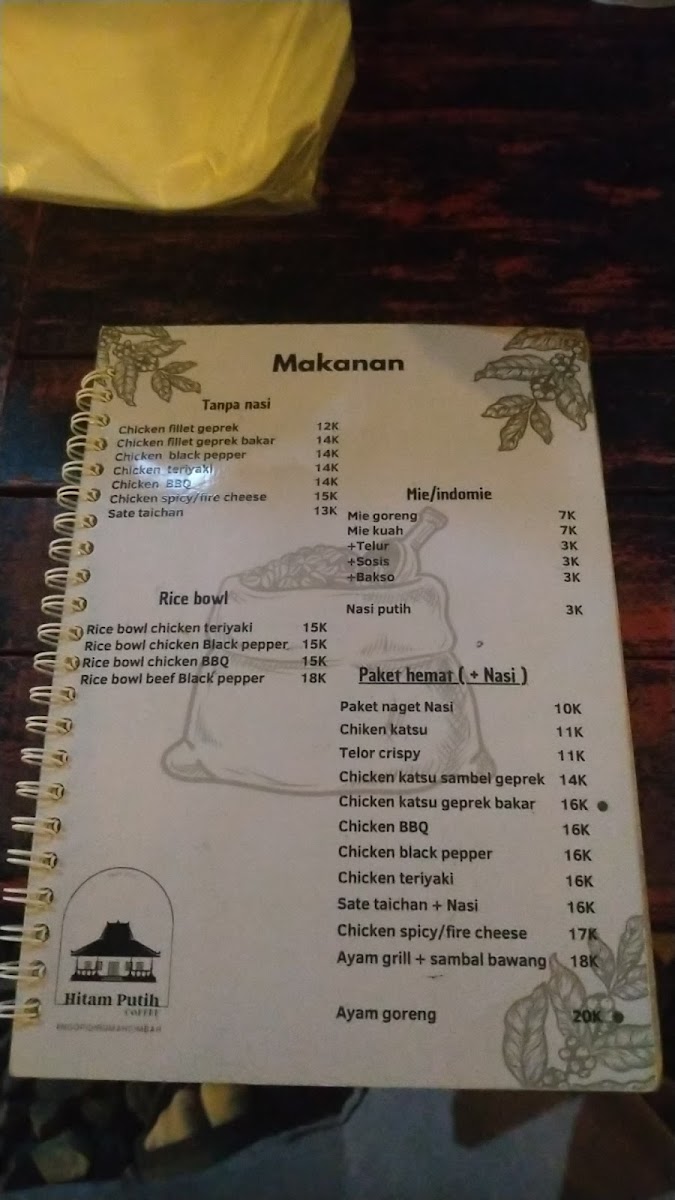 Makanan
Tanpa nasi
Chicken fillet geprek 12K
Chicken fillet geprek bakar 14K
Chicken black pepper 14K
Chicken teriyaki 14K
Chicken BBQ 14K
Chicken spicy/fire cheese 15K
Sate taichan 13K
Rice bowl
Rice bowl chicken teriyaki 15K
Rice bowl chicken Black pepper 15K
Rice bowl chicken BBQ 15K
Rice bowl beef Black pepper 18K
Mie/indomie
Mie goreng 7K
Mie kuah 7K
+Telur 3K
+Sosis 3K
+Bakso 3K
Nasi putih 3K
Paket hemat ( + Nasi )
Paket naget Nasi 10K
Chiken katsu 11K
Telor crispy 11K
Chicken katsu sambel geprek 14K
Chicken katsu geprek bakar 16K
Chicken BBQ 16K
Chicken black pepper 16K
Chicken teriyaki 16K
Sate taichan + Nasi 16K
Chicken spicy/fire cheese 17K
Ayam grill + sambal bawang 18K
Ayam goreng 20K
Hitam Putih
COFFEE